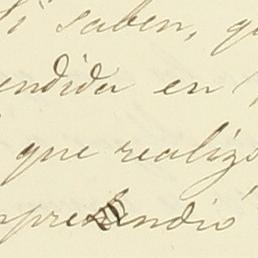 si saben, qu
endida en
que realizó
prendió